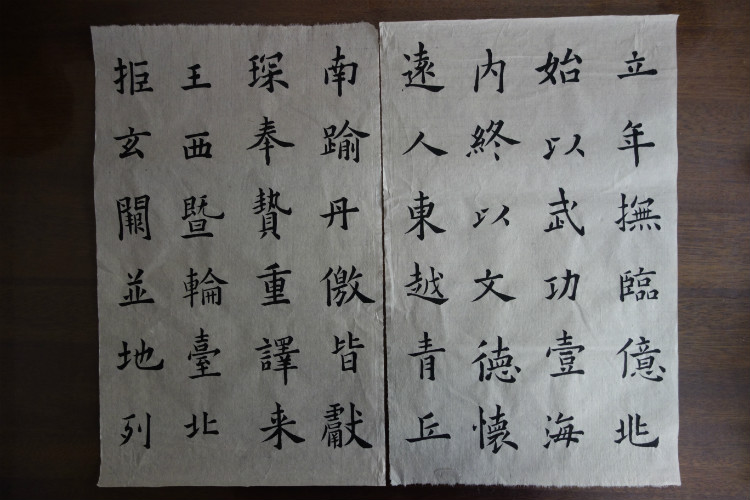 立年撫臨億兆
始以武功壹海
内終以文德懷
遠人東越青丘
南踰丹徼皆獻
琛奉贄重譯来
王西暨輪臺北
拒玄闕並地列